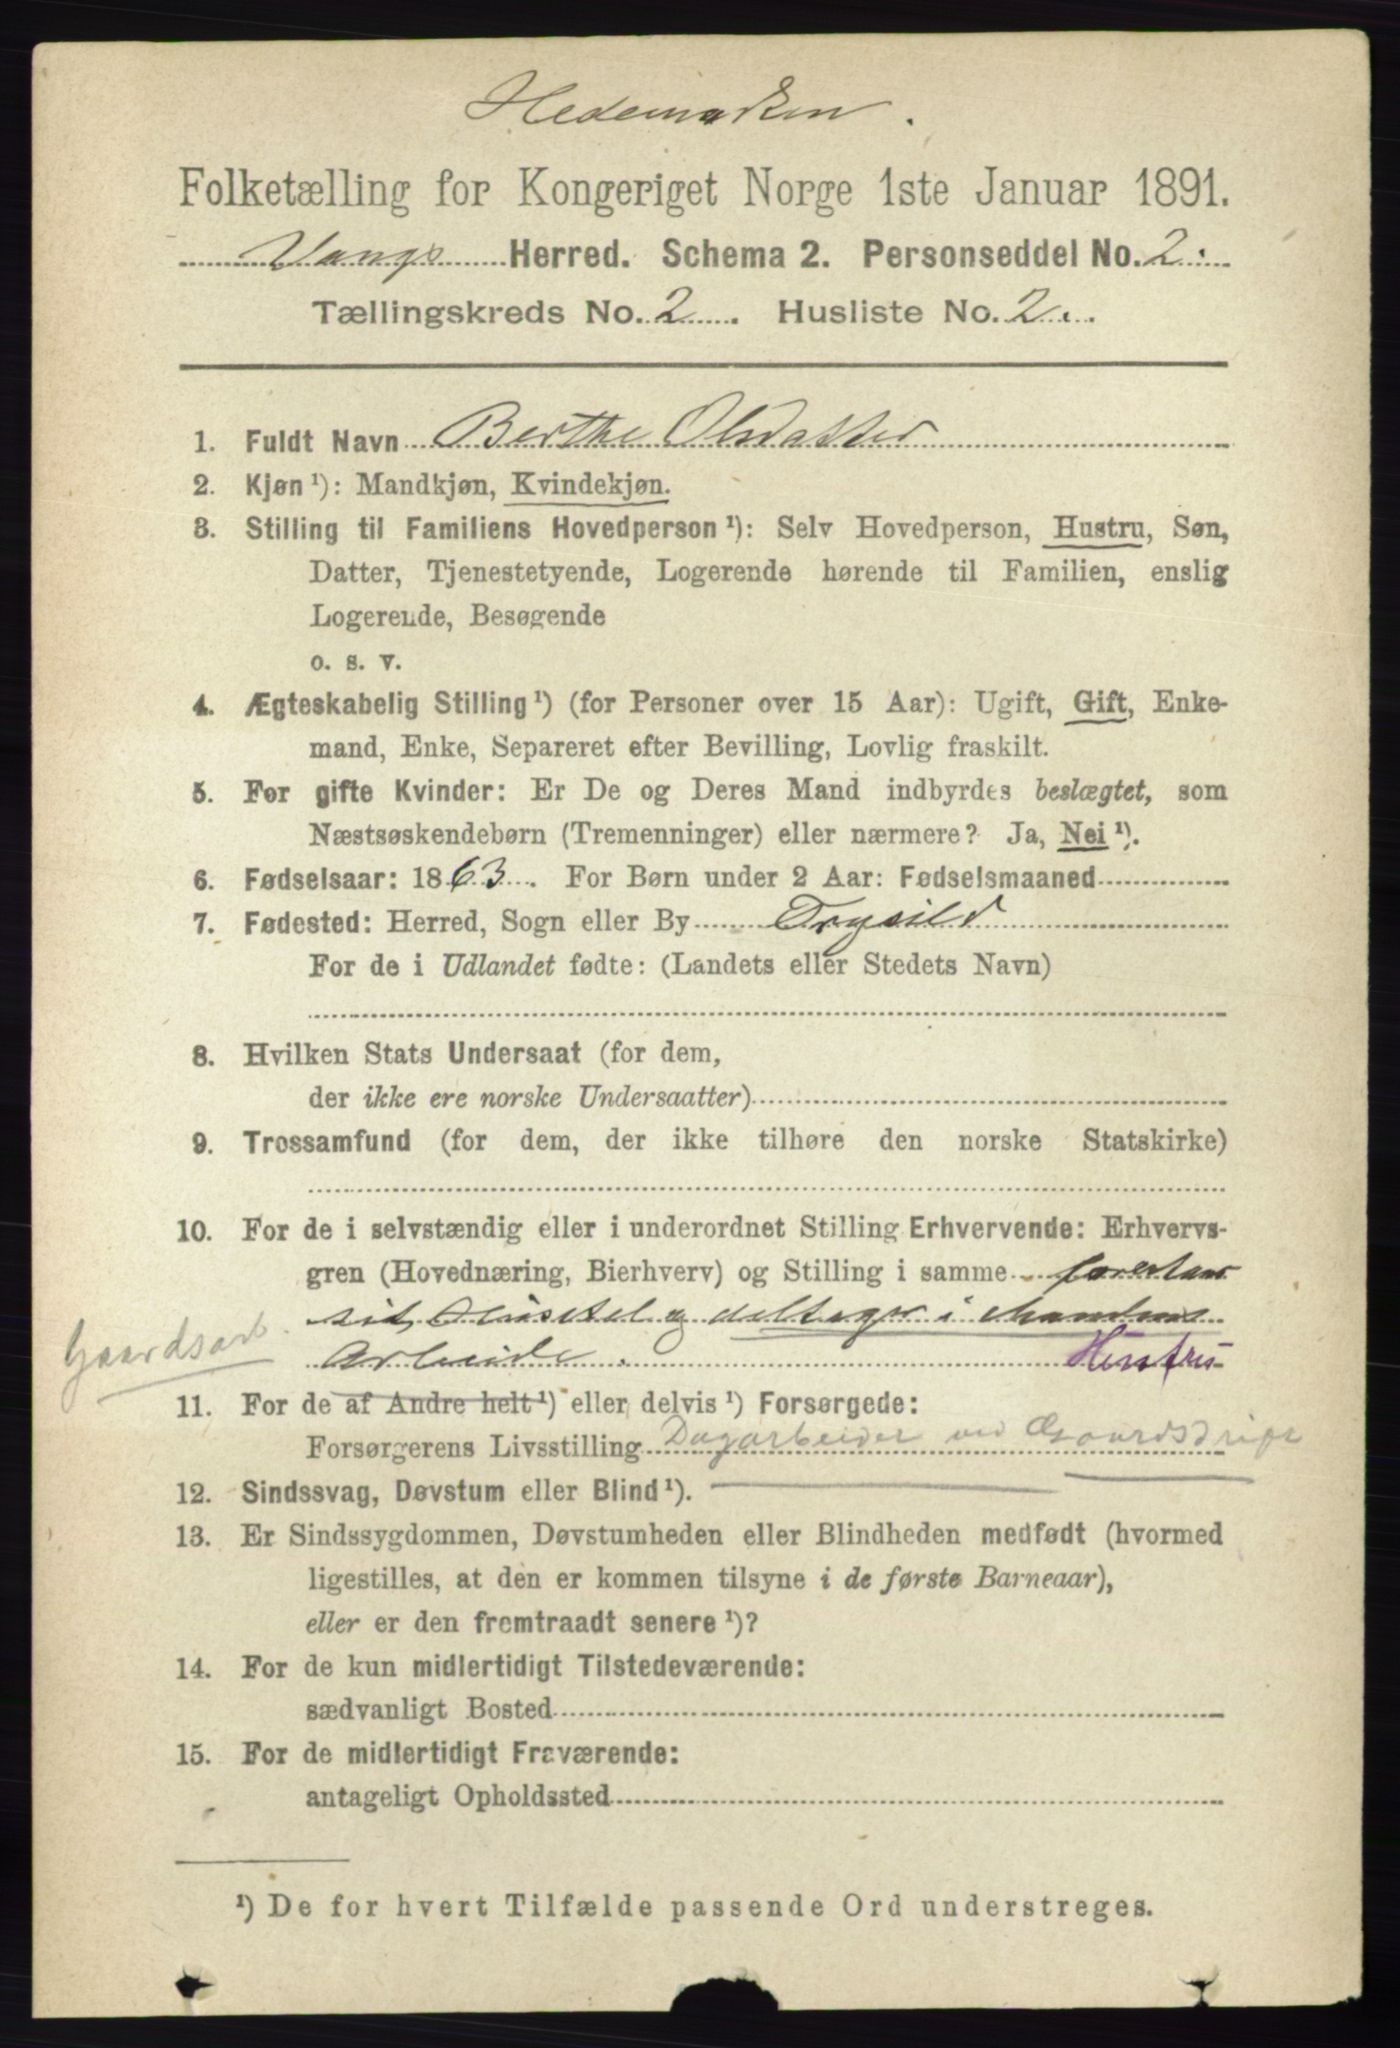 Hedemarken.
Folketælling for Kongeriget Norge 1ste Januar 1891.
Vangs Herred. Schema 2. Personseddel No. 2.
Tællingskreds No. 2. Husliste No. 2.
1. Fuldt Navn Berthe Olsdatter
2. Kjøn ¹): Mandkjøn, Kvindekjøn.
3. Stilling til Familiens Hovedperson ¹): Selv Hovedperson, Hustru, Søn,
Datter, Tjenestetyende, Logerende hørende til Familien, enslig
Logerende, Besøgende
o. s. v.
4. Ægteskabelig Stilling ¹) (for Personer over 15 Aar): Ugift, Gift, Enke-
mand, Enke, Separeret efter Bevilling, Lovlig fraskilt.
5. For gifte Kvinder: Er De og Deres Mand indbyrdes beslægtet, som
Næstsøskendebørn (Tremenninger) eller nærmere? Ja, Nei ¹).
6. Fødselsaar: 1863. For Børn under 2 Aar: Fødselsmaaned
7. Fødested: Herred, Sogn eller By Trysild
For de i Udlandet fødte: (Landets eller Stedets Navn)
8. Hvilken Stats Undersaat (for dem,
der ikke ere norske Undersaatter)
9. Trossamfund (for dem, der ikke tilhøre den norske Statskirke)
10. For de i selvstændig eller i underordnet Stilling Erhvervende: Erhvervs-
gren (Hovednæring, Bierhverv) og Stilling i samme forestaar
sit Husstel og deltager i Mandens
Gaardsarb. Arbeide. Hustru
11. For de af Andre helt ¹) eller delvis ¹) Forsørgede:
Forsørgerens Livsstilling Dagarbeider ved Gaardsdrift
12. Sindssvag, Døvstum eller Blind ¹).
13. Er Sindssygdommen, Døvstumheden eller Blindheden medfødt (hvormed
ligestilles, at den er kommen tilsyne i de første Barneaar),
eller er den fremtraadt senere ¹)?
14. For de kun midlertidigt Tilstedeværende:
sædvanligt Bosted
15. For de midlertidigt Fraværende:
antageligt Opholdssted
¹) De for hvert Tilfælde passende Ord understreges.